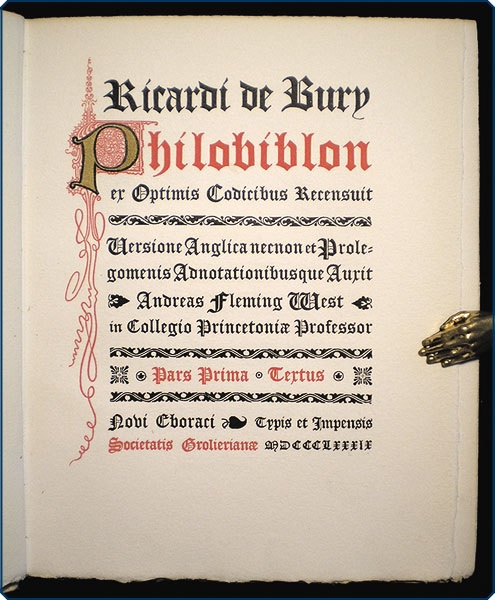 Ricardi de Bury
Philobiblon
ex Optimis Codicibus Recensuit
Versione Anglica necnon et Prole-
gomenis Adnotationibusque Auxit
Andreas Fleming West
in Collegio Princetoniæ Professor
Pars Prima · Textus
Novi Eboraci Typis et Impensis
Societatis Grolierianæ MDCCCLXXXIX